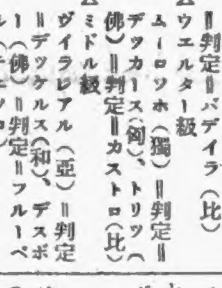 ‖判定‖パデイラ（比）
ウエルター級
ムーロツホ（獨）‖判定‖
デツカース（匈）、トリツ（
佛）‖判定‖カストロ（比）
ミドル級
ヴイラレアル（亞）‖判定
‖デツケルス（和）、デスポ
ー（佛）‖判定‖フルーペ